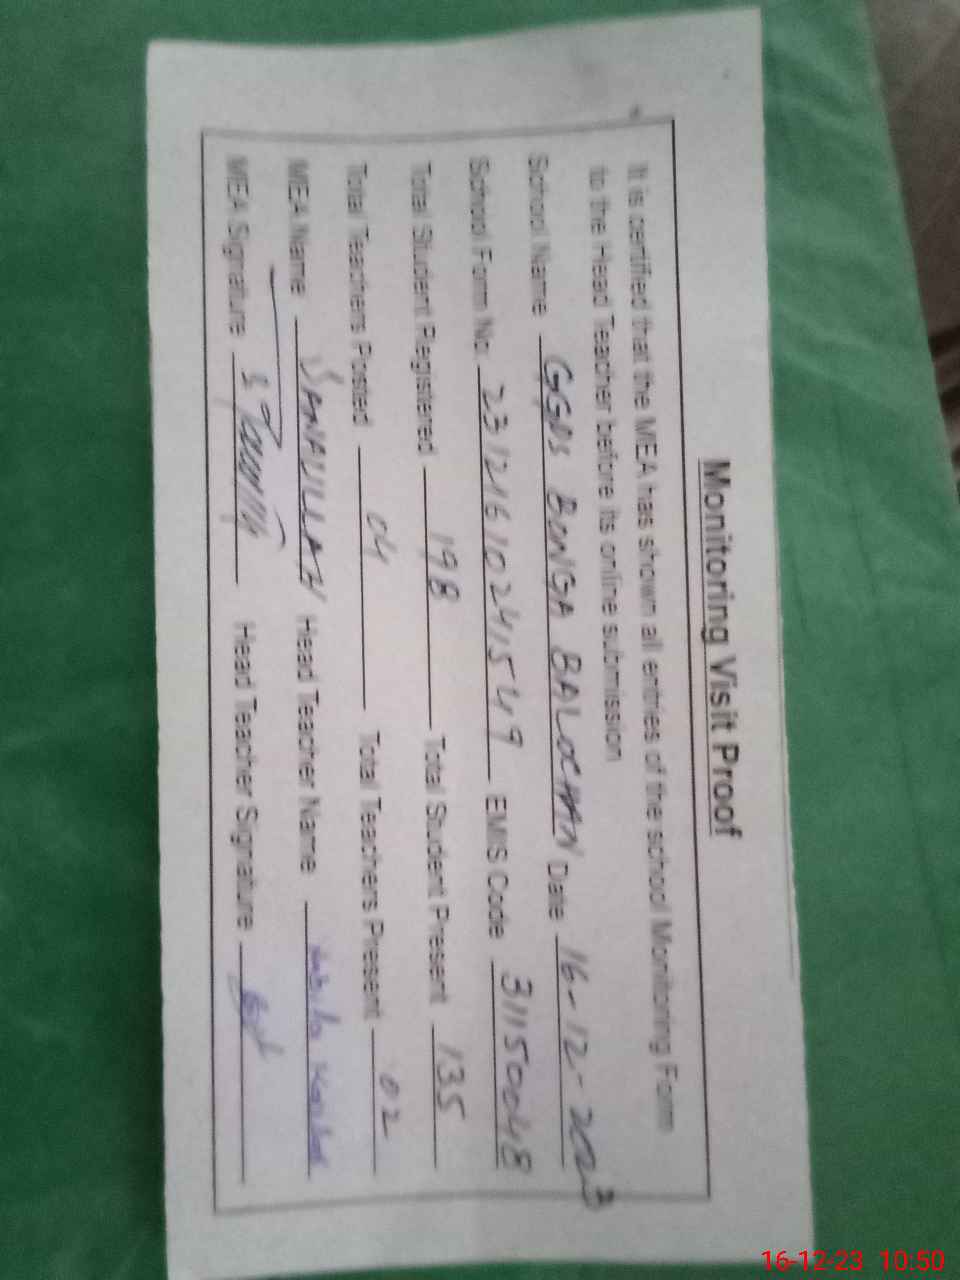 Monitoring Visit Proof
It is certified that the MEA has shown all entries of the school Monitoring Form
to the Head Teacher before its online submission
School Name GGPS BONGA BALOCHAN Date 16-12-2023
School Form No: 23121610241549 EMIS Code 31150048
Total Student Registered 198 Total Student Present 135
Total Teachers Posted 04 Total Teachers Present 02
MEA Name SANAULLAH Head Teacher Name
MEA Signature Head Teacher Signature
16-12-23 10:50